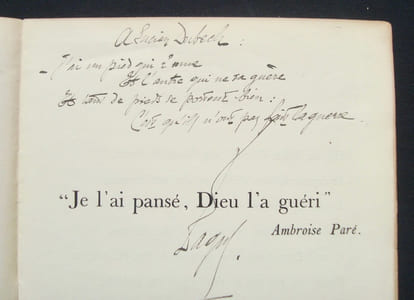 A Lucien Dubech :
– J'ai un pied qui r'mue
Et l'autre qui ne va guère
Et tant de pieds se portent bien :
C'est qu'ils n'ont pas fait la guerre.
"Je l'ai pansé, Dieu l'a guéri"
Ambroise Paré.